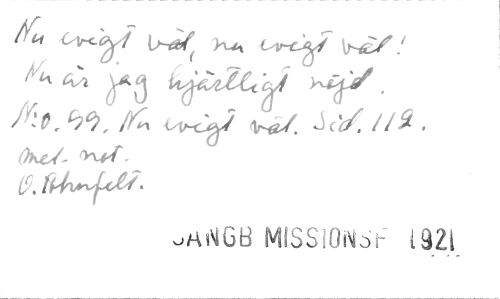 Nu evigt väl, nu evigt väl!
Nu är jag hjärtligt nöjd.
N:o. 99. Nu evigt väl. Sid. 112.
mel. not.
O. Ahnfelt.
SÅNGB MISSIONSF 1921